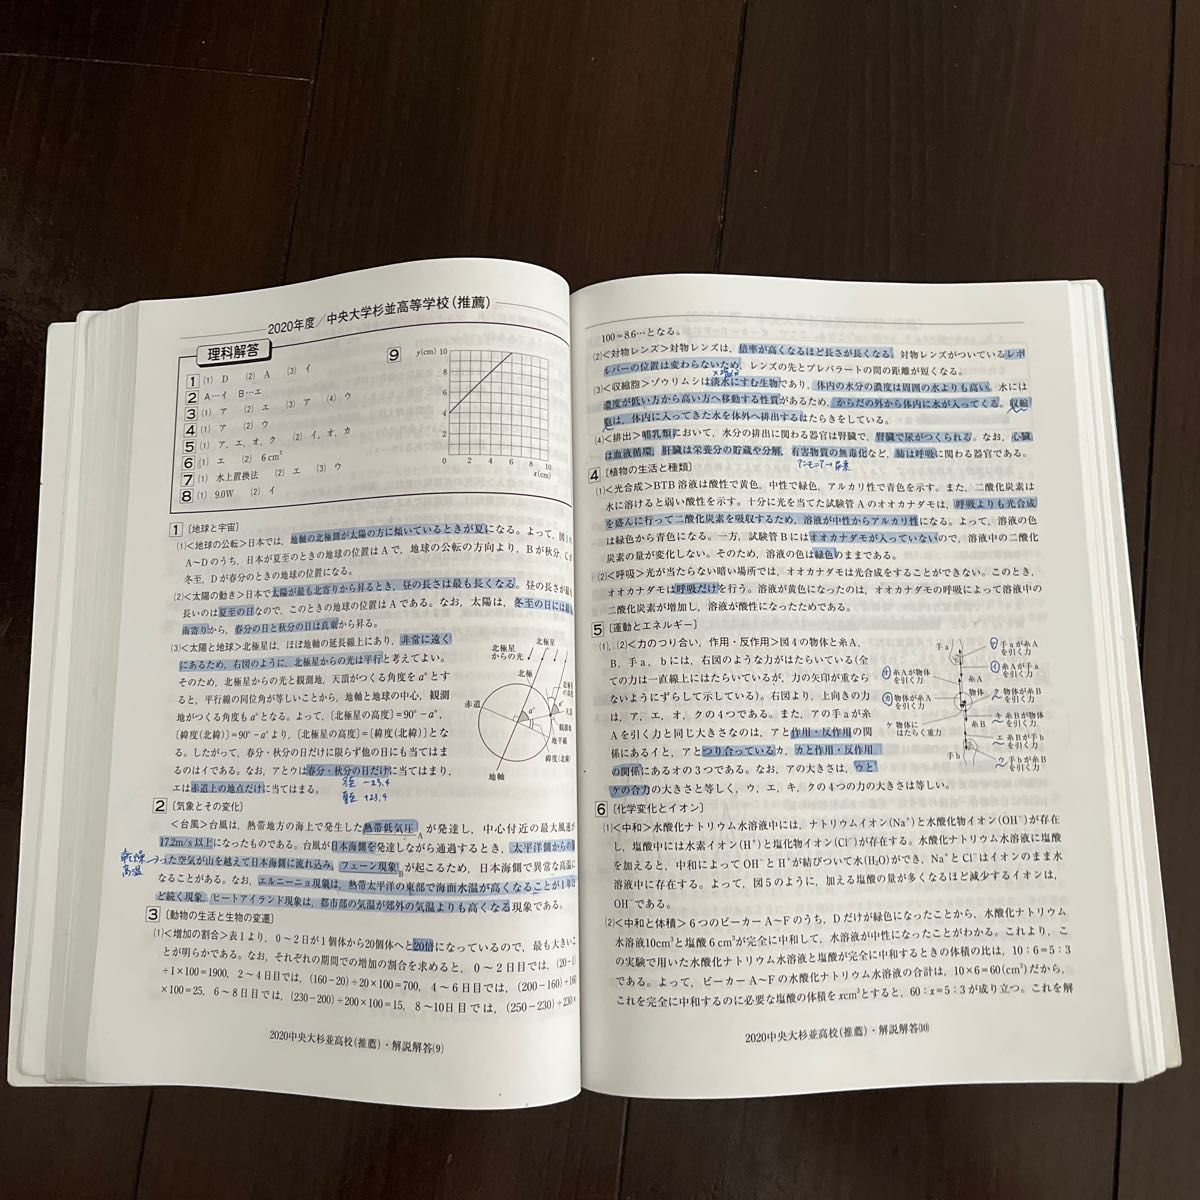 2020年度／中央大学杉並高等学校(推薦)
理科解答
1 (1) D (2) A (3) イ
2 A…イ B…エ
3 (1) ア (2) エ (3) ア (4) ウ
4 (1) ア (2) ウ
5 (1) ア，エ，オ，ク (2) イ，オ，カ
6 (1) エ (2) 6cm³
7 (1) 水上置換法 (2) エ (3) ウ
8 (1) 9.0W (2) イ
9
y(cm) 10
8
6
4
2
0 2 4 6 8 10
x(cm)
1 〔地球と宇宙〕
(1)<地球の公転>日本では，地軸の北極側が太陽の方に傾いているときが夏になる。よって，図1の
A～Dのうち，日本が夏至のときの地球の位置はAで，地球の公転の方向より，Bが秋分，Cが
冬至，Dが春分のときの地球の位置になる。
(2)<太陽の動き>日本で太陽が最も北寄りから昇るとき，昼の長さは最も長くなる。昼の長さが最も
長いのは夏至の日なので，このときの地球の位置はAである。なお，太陽は，冬至の日には最も
南寄りから，春分の日と秋分の日は真東から昇る。
(3)<太陽と地球>北極星は，ほぼ地軸の延長線上にあり，非常に遠く
にあるため，右図のように，北極星からの光は平行と考えてよい。
そのため，北極星からの光と観測地，天頂がつくる角度をa°とす
ると，平行線の同位角が等しいことから，地軸と地球の中心，観測
地がつくる角度もa°となる。よって，〔北極星の高度〕＝90°－a°，
〔緯度(北緯)〕＝90°－a°より，〔北極星の高度〕＝〔緯度(北緯)〕とな
る。したがって，春分・秋分の日だけに限らず他の日にも当てはま
るのはイである。なお，アとウは春分・秋分の日だけに当てはまり，
エは赤道上の地点だけに当てはまる。
－23.4
＋23.4
北極星からの光
北極星
北極星
北極
赤道
a°
a°
天頂
観測地
地平線
緯度(北緯)
地軸
2 〔気象とその変化〕
<台風>台風は，熱帯地方の海上で発生した熱帯低気圧Aが発達し，中心付近の最大風速が
17.2m/s以上になったものである。台風が日本海側を発達しながら通過するとき，太平洋側からの
った空気が山を越えて日本海側に流れ込み，フェーン現象Bが起こるため，日本海側で異常な高温に
なることがある。なお，エルニーニョ現象は，熱帯太平洋の東部で海面水温が高くなることが1年ほ
ど続く現象，ヒートアイランド現象は，都市部の気温が郊外の気温よりも高くなる現象である。
乾燥
高温
3 〔動物の生活と生物の変遷〕
(1)<増加の割合>表1より，0～2日が1個体から20個体へと20倍になっているので，最も大きいこ
とが明らかである。なお，それぞれの期間での増加の割合を求めると，0～2日目では，(20-1)
÷1×100=1900，2～4日目では，(160-20)÷20×100=700，4～6日目では，(200-160)÷160
×100=25，6～8日目では，(230-200)÷200×100=15，8～10日目では，(250-230)÷230×
2020中央大杉並高校(推薦)・解説解答(9)
100＝8.6…となる。
(2)<対物レンズ>対物レンズは，倍率が高くなるほど長さが長くなる。対物レンズがついているレボ
ルバーの位置は変わらないため，レンズの先とプレパラートの間の距離が短くなる。
(3)<収縮胞>ゾウリムシは淡水にすむ生物であり，体内の水分の濃度は周囲の水よりも高い。水には
濃度が低い方から高い方へ移動する性質があるため，からだの外から体内に水が入ってくる。収縮
胞は，体内に入ってきた水を体外へ排出するはたらきをしている。
(4)<排出>哺乳類において，水分の排出に関わる器官は腎臓で，腎臓で尿がつくられる。なお，心臓
は血液循環，肝臓は栄養分の貯蔵や分解，有害物質の無毒化など，肺は呼吸に関わる器官である。
アンモニア→尿素
4 〔植物の生活と種類〕
(1)<光合成>BTB溶液は酸性で黄色，中性で緑色，アルカリ性で青色を示す。また，二酸化炭素は
水に溶けると弱い酸性を示す。十分に光を当てた試験管Aのオオカナダモは，呼吸よりも光合成
を盛んに行って二酸化炭素を吸収するため，溶液が中性からアルカリ性になる。よって，溶液の色
は緑色から青色になる。一方，試験管Bにはオオカナダモが入っていないので，溶液中の二酸化
炭素の量が変化しない。そのため，溶液の色は緑色のままである。
(2)<呼吸>光が当たらない暗い場所では，オオカナダモは光合成をすることができない。このとき，
オオカナダモは呼吸だけを行う。溶液が黄色になったのは，オオカナダモの呼吸によって溶液中の
二酸化炭素が増加し，溶液が酸性になったためである。
5 〔運動とエネルギー〕
(1)，(2)<力のつり合い，作用・反作用>図4の物体と糸A，
B，手a，bには，右図のような力がはたらいている(全
ての力は一直線上にはたらいているが，力の矢印が重なら
ないようにずらして示している)。右図より，上向きの力
は，ア，エ，オ，クの4つである。また，アの手aが糸
Aを引く力と同じ大きさなのは，アと作用・反作用の関
係にあるイと，アとつり合っているカ，カと作用・反作用
の関係にあるオの3つである。なお，アの大きさは，ウと
ケの合力の大きさと等しく，ウ，エ，キ，クの4つの力の大きさは等しい。
手a
ア 手aが糸A
を引く力
イ 糸Aが手a
を引く力
オ 糸Aが物体
を引く力
糸A
カ 物体が糸A
を引く力
物体
物体が糸B
を引く力
ケ 物体に
はたらく重力
キ 糸Bが物体
を引く力
糸B
エ 糸Bが手b
を引く力
手b
手bが糸B
を引く力
6 〔化学変化とイオン〕
(1)<中和>水酸化ナトリウム水溶液中には，ナトリウムイオン(Na⁺)と水酸化物イオン(OH⁻)が存在
し，塩酸中には水素イオン(H⁺)と塩化物イオン(Cl⁻)が存在する。水酸化ナトリウム水溶液に塩酸
を加えると，中和によってOH⁻とH⁺が結びついて水(H₂O)ができ，Na⁺とCl⁻はイオンのまま水
溶液中に存在する。よって，図5のように，加える塩酸の量が多くなるほど減少するイオンは，
OH⁻である。
(2)<中和と体積>6つのビーカーA～Fのうち，Dだけが緑色になったことから，水酸化ナトリウム
水溶液10cm³と塩酸6cm³が完全に中和して，水溶液が中性になったことがわかる。これより，こ
の実験で用いた水酸化ナトリウム水溶液と塩酸が完全に中和するときの体積の比は，10：6＝5：3
である。よって，ビーカーA～Fの水酸化ナトリウム水溶液の合計は，10×6＝60(cm³)だから，
これを完全に中和するのに必要な塩酸の体積をxcm³とすると，60：x＝5：3が成り立つ。これを解
2020中央大杉並高校(推薦)・解説解答(10)